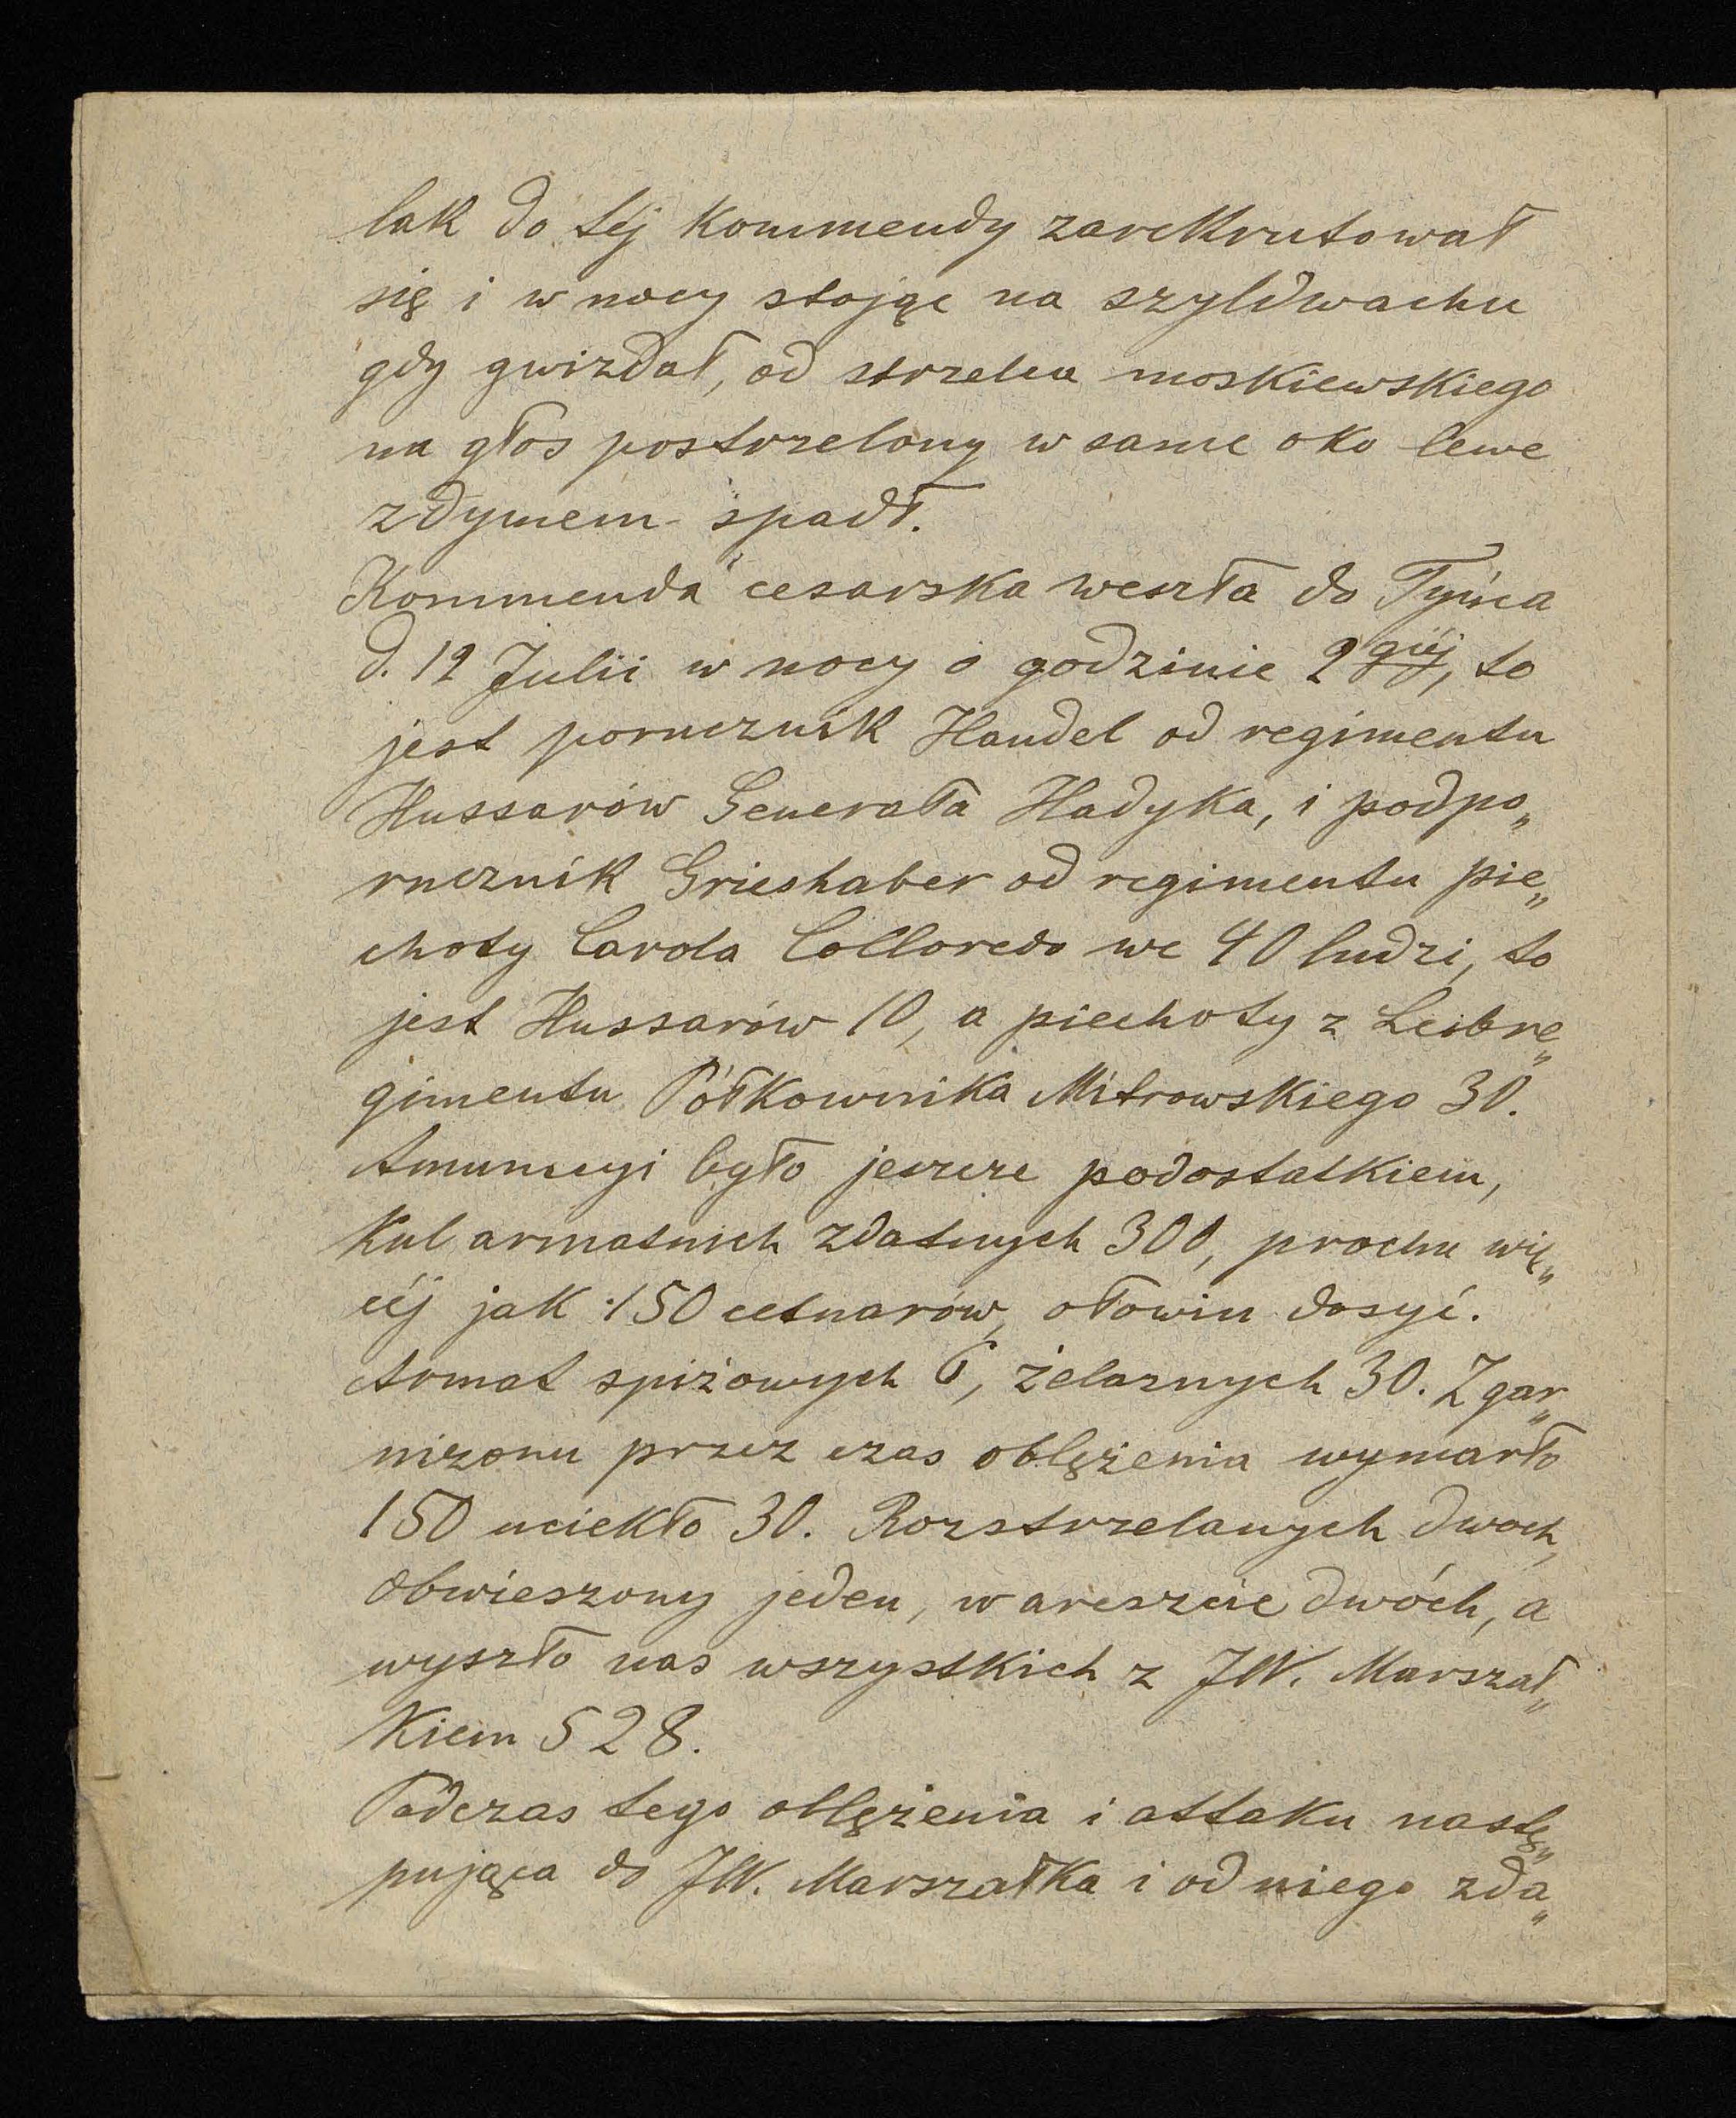 lak do téj kommendy zarekrutował
się i w nocy stojąc na szyldwachu
gdy gwizdał, od strzelca moskiewskiego
na głos postrzelony w same oko lewe
z dymem spadł.
Kommenda cesarska weszła do Tyńca
d. 12 Julii w nocy o godzinie 2giéj, to
jest porucznik Handel od regimentu
Hussarów Generała Hadyka, i podpo„
rucznik Grieshaber od regimentu pie„
choty Carola Colloredo we 40 ludzi, to
jest Hussarów 10, a piechoty z Leibre„
gimentu Półkownika Mitrowskiego 30.
Amunicyi było jeszcze podostatkiem,
Kul armatnich zdatnych 300, prochu wię„
céj jak 150 cetnarów, ołowiu dosyć.
Armat spiżowych 6, żelaznych 30. Z gar„
nizonu przez czas oblężenia wymarło
150 uciekło 30. Rozstrzelanych dwoch,
obwieszony jeden, w areszcie dwóch, a
wyszło nas wszystkich z JW. Marszał„
kiem 528.
Podczas tego oblężenia i attaku nastę„
pująca do JW. Marszałka i od niego zda„